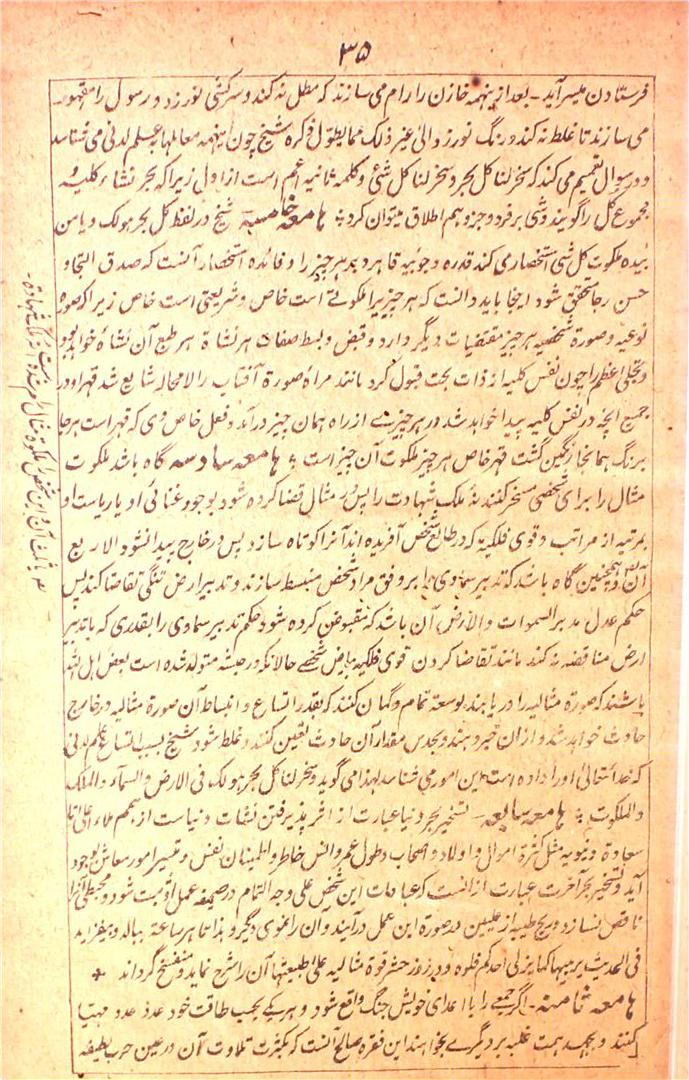 ۳۵
فرستادن میسر آید۔ بعد ازینهمه خازن را رام می سازند که مطل نه کند و سرکشی نورزد و رسول را مقهور
می سازند تا غلط نه کند و رنگ نورزد والی غیر ذلک مما یطول ذکره شیخ چون ینهمه معاملها بعلم لدنی می شناسد
و در سوال تعمیم می کند که سخر لنا کل بحر و سخر لنا کل شئ و کلمه ثانیه اعم است از اول زیرا که بحر نشاء کلیه و
مجموع کل را گویند و شی بر فرد و جزو هم اطلاق میتوان کرد ÷ هامعه خامسه شیخ در لفظ کل بحر هو لک و یا من
بیده ملکوت کل شئ استحضار می کند قدرة وجوبیه قاهره بر هر چیز را و فائده استحضار آنست که صدق التجا و
حسن رجا متحقق شود اینجا باید دانست که هر چیز را ملکوتے است خاص و شریعتی است خاص زیرا که صورة
نوعیه و صورة شخصیه هر چیز مقتضیات دیگر دارد و قبض و بسط صفات هر نشاة هر طبع آن نشاة خواهد بود
و تجلی اعظم را چون نفس کلیه از ذات بحت قبول کرد مانند مراة صورة آفتاب را لا محاله شایع شد قهر او در
جمیع آنچه در نفس کلیه پیدا خواهد شد و در هر چیزے از راه همان چیز در آمد و فعل خاص وی که قهر است هر جا
برنگ همانجا رنگین گشت قهر خاص هر چیز ملکوت آن چیز است ÷ هامعه سادسه گاه باشد ملکوت
مثال را برای شخصی مسخر کنند نه ملک شهادت را پس در مثال قضا کرده شود بوجود غنائی او یا ریاست او
بمرتبه از مراتب و قوی فلکیه که در طالع شخص آفریده اند آنرا کوتاه سازد پس در خارج پیدا نشود الا ربع
آن و همچنین گاه باشد که تدبیر سماوی بر وفق مراد شخص منبسط سازند و تدبیر ارض تنگی تقاضا کند پس
حکم عدل مدبر السموات والارض آن باشد که مقبوض کرده شود حکم تدبیر سماوی را بقدری که با تدبیر
ارض مناقضه نه کند مانند تقاضا کردن قوی فلکیه بیاض شخصے حالانکه در حبشه متولد شده است بعض اهل الله
باشند که صورة مثالیه را دریابند بوسعة تمام و گمان کنند که بقدر اتساع و انبساط آن صورة مثالیه در خارج
حادث خواهد شد و از ان خبر دهند و بحدس مقدار آن حادث یقین کنند و غلط شود شیخ بسبب اتساع علم لدنی
که خدا تعالی او را داده است این امور می شناسد لهذا می گوید و سخر لنا کل بحر هو لک فی الارض والسمآء والملک
والملکوت ÷ هامعه سابعه۔ تسخیر بحر دنیا عبارت از اثر پذیر رفتن نشات دنیا ست از همم ملاء اعلی تا
سعادة دنیویه مثل کثرة اموال و اولاد و اصحاب و طول عمر و انس خاطر و اطمینان نفس و تیسیر امور معاش بوجود
آید و تسخیر بحر آخرت عبارت از انست که عبادات این شخص علی وجه التمام در صحیفه عمل او ثبت شود و محبطی آنرا
ناقص نسازد و ریح طیبه از علیین در صورة این عمل در آیند و آن را نموی دیگر و بذاتا هر ساعة ببالد و بیفزاید
فی الحدیث یربیها کما یربی احدکم فلوه و در روز حشر قوة مثالیه علی طبیعتها آن را شرح نماید و منفسخ گرداند *
هامعه ثامنه۔ اگر جمعے را با اعدای خویش جنگ واقع شود و هر یکے بحسب طاقت خود عدد عدو مهیا
کنند و بجهد همت غلبه بر دیگرے بخواهند این فقره صالح آنست که بکثرت تلاوت آن در عین حرب بطیفه